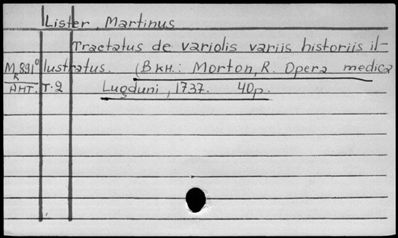 Lister, Martinus
Tractatus de variolis variis historiis il-
M891° lustratus. (Вкн.: Morton, R. Opera medica
Ант. T.2 Lugduni, 1737. 40p.